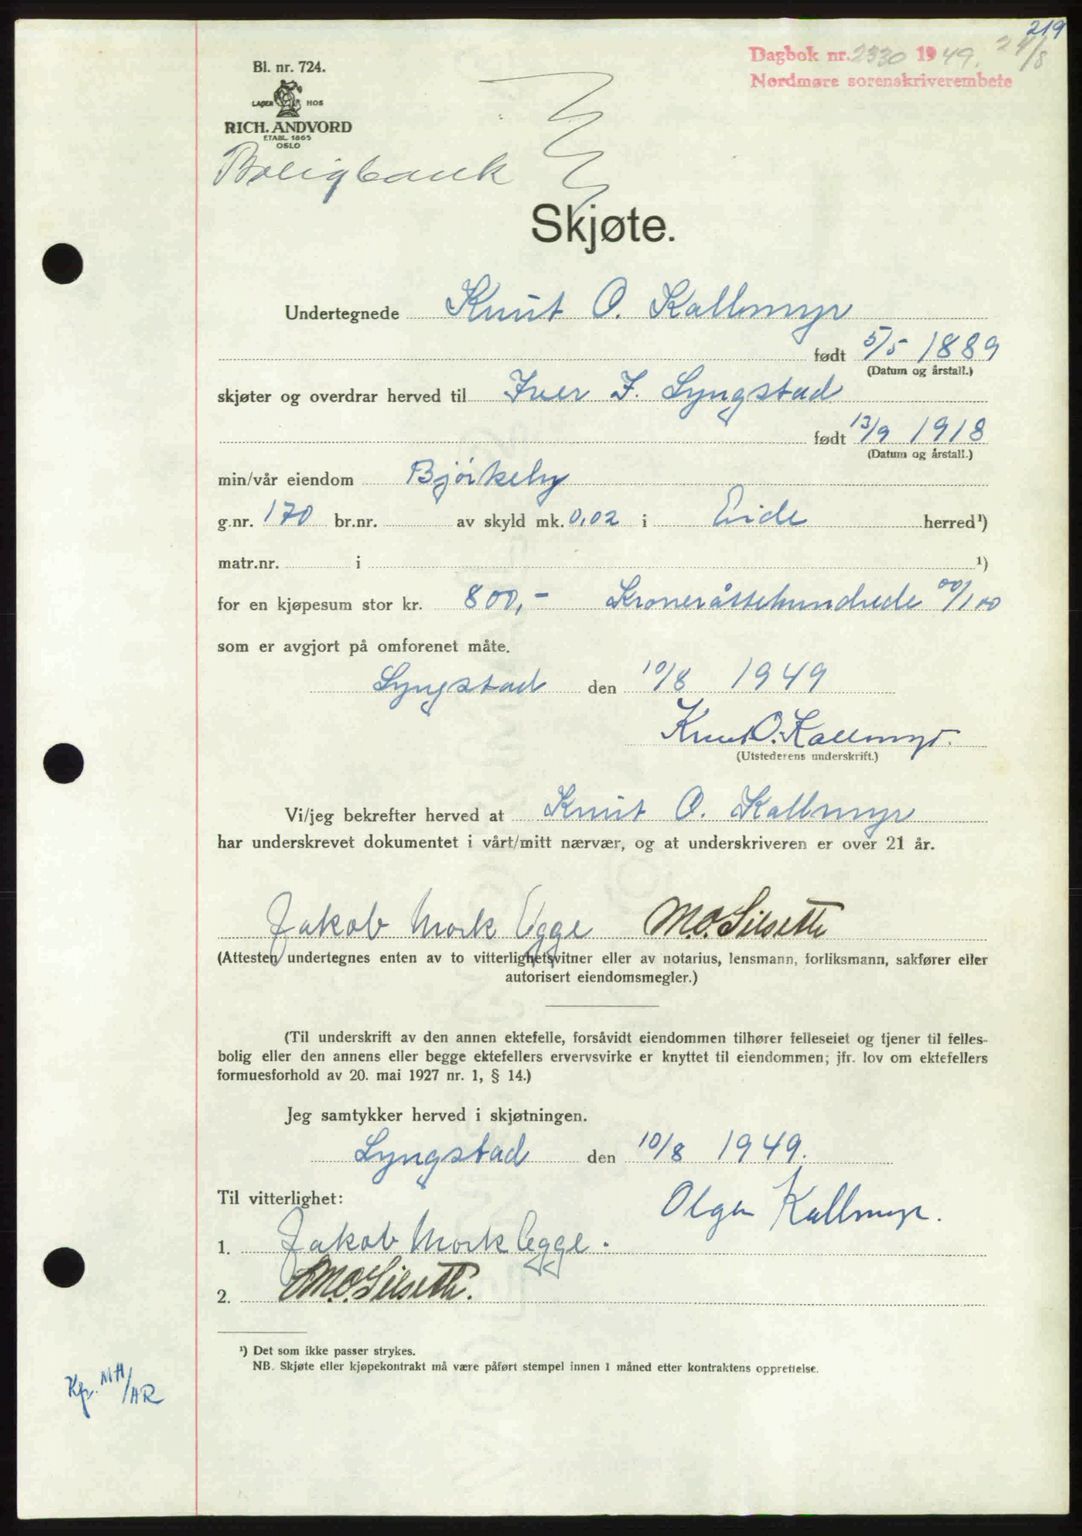 219
Dagbok nr. 2330 1949. 24/8
Nordmøre sorenskriverembete
Bl. nr. 724.
LAGER HOS
RICH. ANDVORD
ETABL. 1865
OSLO
Boligbank
Skjøte.
Undertegnede Knut O. Kallmyr
født 5/5 1889
(Datum og årstall.)
skjøter og overdrar herved til Iver I. Lyngstad
født 13/9 1918
(Datum og årstall.)
min/vår eiendom Bjørkeby
g.nr. 170 br.nr. av skyld mk. 0,02 i Eide herred¹)
matr.nr. i ¹)
for en kjøpesum stor kr. 800,- Kroneråttehundrede 00/100
som er avgjort på omforenet måte.
Lyngstad den 10/8 1949
Knut O. Kallmyr.
(Utstederens underskrift.)
Vi/jeg bekrefter herved at Knut O. Kallmyr
har underskrevet dokumentet i vårt/mitt nærvær, og at underskriveren er over 21 år.
Jakob Mork Ugge M.O. Silseth
(Attesten undertegnes enten av to vitterlighetsvitner eller av notarius, lensmann, forliksmann, sakfører eller
autorisert eiendomsmegler.)
(Til underskrift av den annen ektefelle, forsåvidt eiendommen tilhører felleseiet og tjener til felles-
bolig eller den annens eller begge ektefellers ervervsvirke er knyttet til eiendommen; jfr. lov om ektefellers
formuesforhold av 20. mai 1927 nr. 1, § 14.)
Jeg samtykker herved i skjøtningen.
Lyngstad den 10/8 1949.
Til vitterlighet:
Olga Kallmyr.
1. Jakob Mork Ugge.
2. M.O. Silseth.
¹) Det som ikke passer strykes.
NB. Skjøte eller kjøpekontrakt må være påført stempel innen 1 måned etter kontraktens opprettelse.
Kp. MH/AR